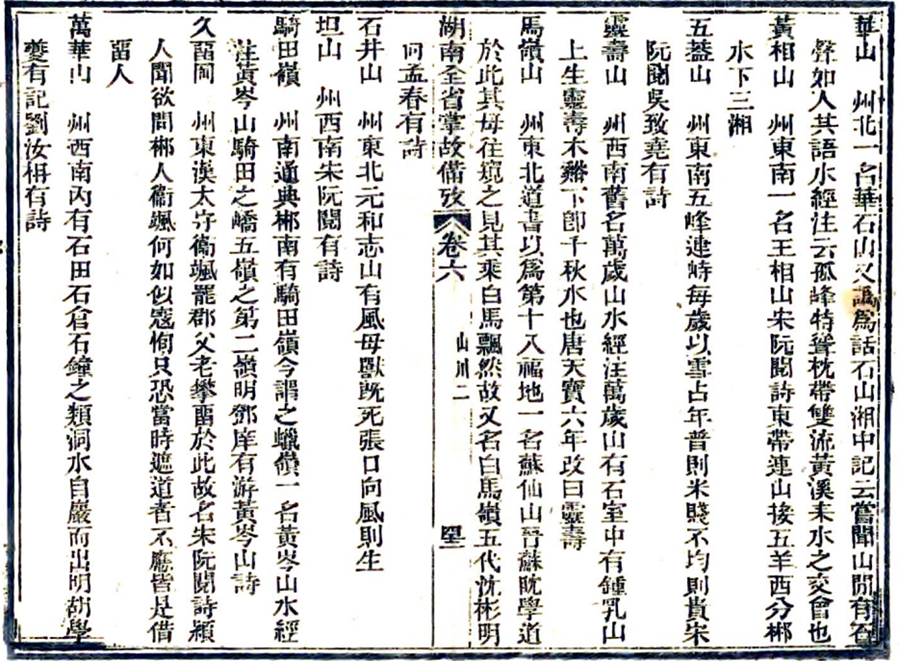 華山　州北一名華石山又譌爲話石山湘中記云嘗聞山閒有答
聲如人共語水經注云孤峰特聳枕帶雙流黃溪耒水之交會也
黃相山　州東南一名王相山宋阮閱詩東帶連山接五羊西分郴
水下三湘
五葢山　州東南五峰連峙每歲以雪占年普則米賤不均則貴宋
阮閱吳致堯有詩
靈壽山　州西南舊名萬歲山水經注萬歲山有石室中有鍾乳山
上生靈壽木谿下卽千秋水也唐天寶六年改曰靈壽
馬嶺山　州東北道書以爲第十八福地一名蘇仙山晉蘇耽學道
於此其母往窺之見其乘白馬飄然故又名白馬嶺五代沈彬明
湖南全省掌故備攷　卷六　山川二
何孟春有詩
石井山　州東北元和志山有風母獸旣死張口向風則生
坦山　州西南宋阮閱有詩
騎田嶺　州南通典郴南有騎田嶺今謂之蠟嶺一名黃岑山水經
注黃岑山騎田之嶠五嶺之第二嶺明鄧庠有游黃岑山詩
久畱岡　州東漢太守衞颯罷郡父老攀畱於此故名宋阮閱詩頻
人聞欲問郴人衞颯何如似寇恂只恐當時遮道者不應皆是借
畱人
萬華山　州西南內有石田石倉石鐘之類洞水自巖而出明胡學
夔有記劉汝楫有詩